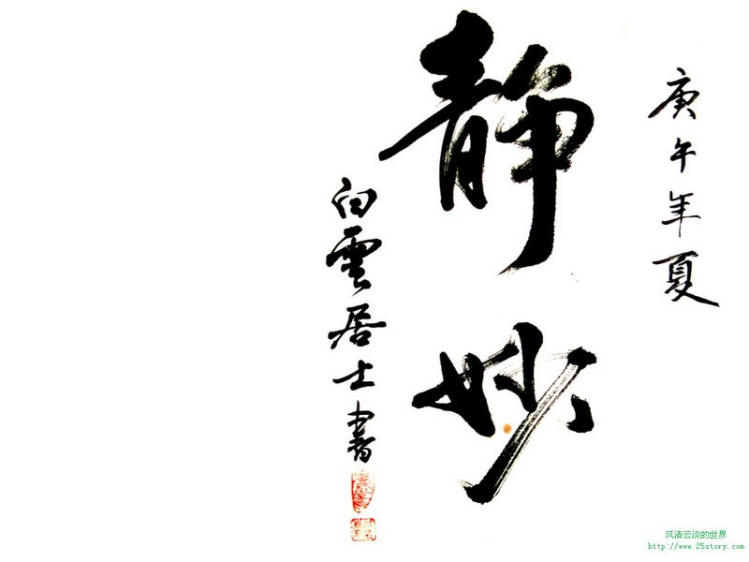 庚午年夏
静妙
白雲居士書
风清云淡的世界
http://www.25story.com